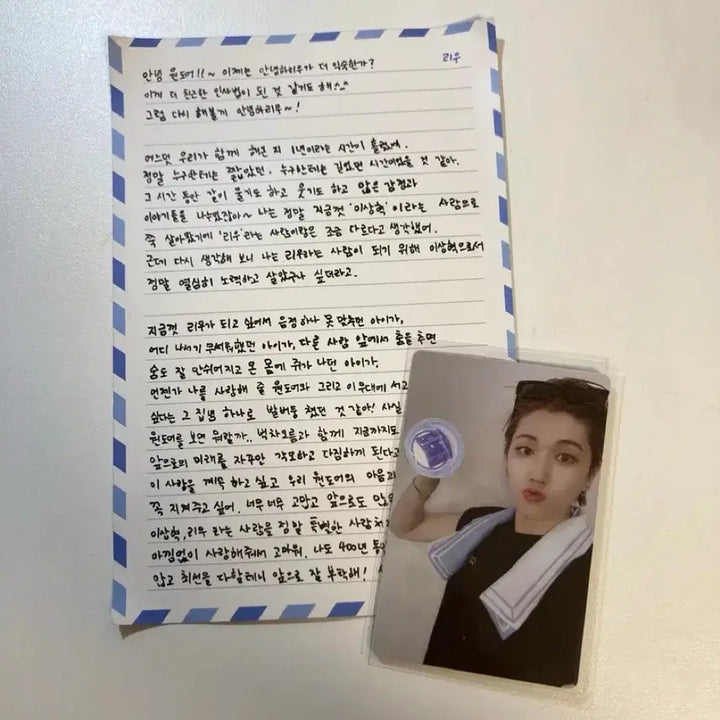 리우
안녕 원도어!!~ 이제는 안녕하리우가 더 익숙한가?
이게 더 친근한 인사법이 된 것 같기도 해^_^
그럼 다시 해볼게 안녕하리우~!
어느덧 우리가 함께 해온 지 1년이라는 시간이 흘렀네.
정말 누구한테는 짧았던. 누구한테는 길었던 시간이었을 것 같아.
그 시간 동안 같이 울기도 하고 웃기도 하고 많은 감정과
이야기들을 나누었잖아~ 나는 정말 지금껏 '이상혁'이라는 사람으로
쭉 살아왔기에 '리우'라는 사람이랑은 조금 다르다고 생각했어.
근데 다시 생각해 보니 나는 리우라는 사람이 되기 위해 이상혁으로서
정말 열심히 노력하고 살았구나 싶더라고.
지금껏 리우가 되고 싶어서 음정 하나 못 맞추던 아이가,
어디 나서기 무서워했던 아이가, 다른 사람 앞에서 춤을 추면
숨도 잘 안 쉬어지고 온 몸에 쥐가 나던 아이가,
언젠가 나를 사랑해 줄 원도어와 그리고 이 무대에 서고
싶다는 그 집념 하나로 발버둥 쳤던 것 같아! 사실
원도어를 보면 뭐랄까.. 벅차오름과 함께 지금까지도
앞으로의 미래를 자꾸만 각오하고 다짐하게 된다고
이 사랑을 계속 하고 싶고 우리 원도어의 마음과
꼭 지켜주고 싶어. 너무너무 고맙고 앞으로도
이상혁, 리우 라는 사람을 정말 특별한 사람처럼
아낌없이 사랑해줘서 고마워. 나도 400년 동안
안고 최선을 다할테니 앞으로 잘 부탁해!